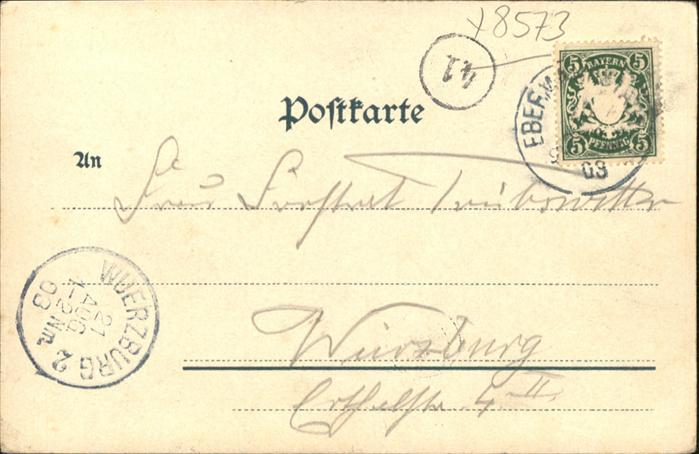 x8573
41
BAYERN
5 5
5 5
PFENNIG
EBER
03
Postkarte
An
Frau Forstrat
Würzburg
4 II
WUERZBURG 2
21
AUG
1-2 Nm.
03